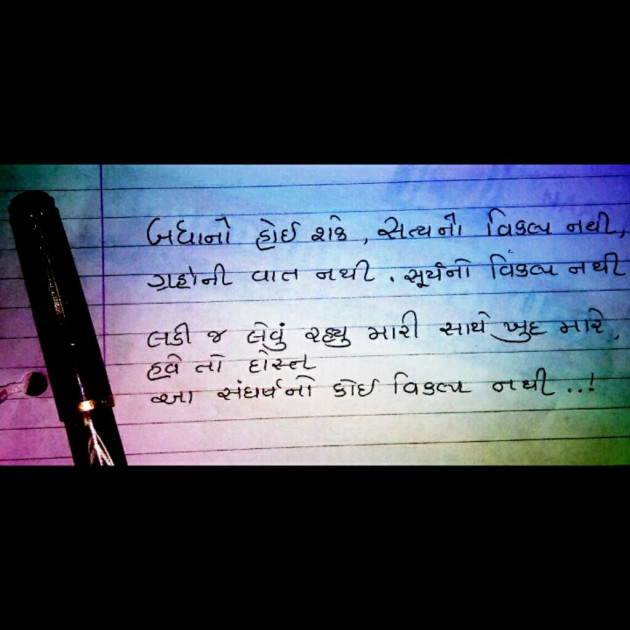 બધાનો હોઈ શકે, સત્યનો વિકલ્પ નથી,
ગ્રહોની વાત નથી. સૂર્યનો વિકલ્પ નથી
લડી જ લેવું રહ્યુ મારી સાથે ખુદ મારે,
હવે તો દોસ્ત
આ સંઘર્ષનો કોઈ વિકલ્પ નથી..!